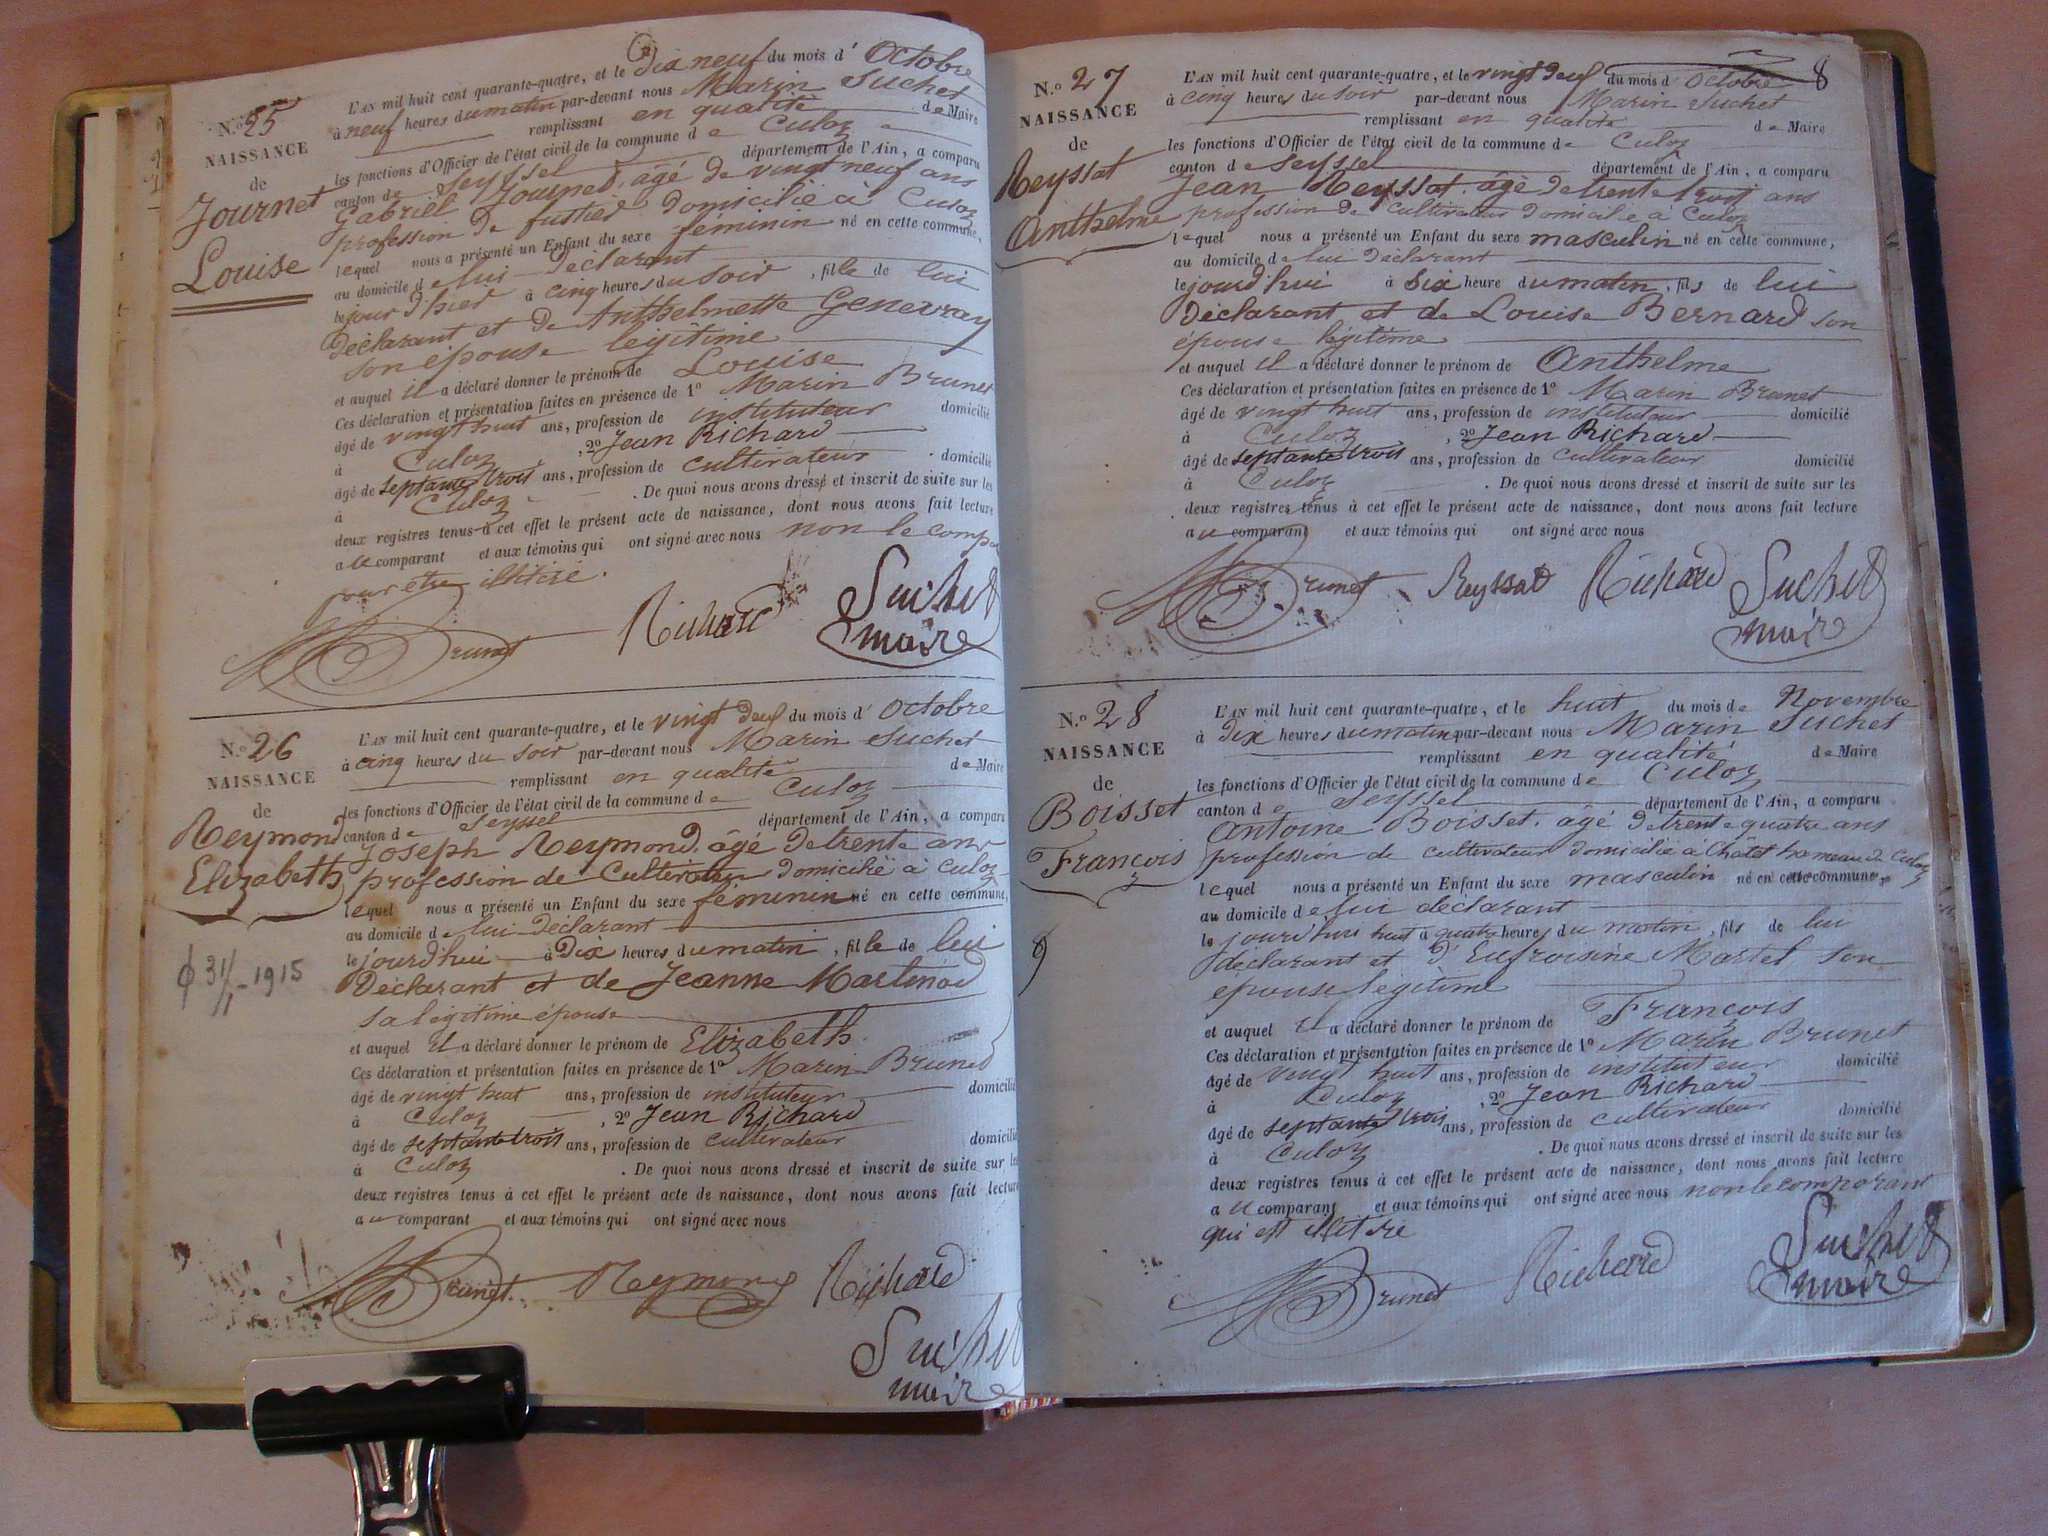 N.o 25
NAISSANCE
de
Journet
Louise
L'AN mil huit cent quarante-quatre, et le dix neuf du mois d' Octobre
à neuf heures du matin par-devant nous Marin Suchet
remplissant en qualité de Maire
les fonctions d'Officier de l'état civil de la commune de Culoz
canton de Seyssel département de l'Ain, a comparu
Gabriel Journet, âgé de vingt neuf ans
profession de fustier domicilié à Culoz
lequel nous a présenté un Enfant du sexe féminin né en cette commune,
au domicile de lui déclarant
le jour d'hier à cinq heures du soir, fille de lui
déclarant et de Anthelmette Genevray
son épouse légitime
et auquel il a déclaré donner le prénom de Louise
Ces déclaration et présentation faites en présence de 1o Marin Brunet
âgé de vingt huit ans, profession de instituteur domicilié
à Culoz, 2o Jean Richard
âgé de septante trois ans, profession de cultivateur domicilié
à Culoz. De quoi nous avons dressé et inscrit de suite sur les
deux registres tenus à cet effet le présent acte de naissance, dont nous avons fait lecture
au comparant et aux témoins qui ont signé avec nous non le compa
pour être illitéré.
Brunet Richard Suchet
maire
N.o 26
NAISSANCE
de
Reymond
Elizabeth
31/1-1915
L'AN mil huit cent quarante-quatre, et le vingt deux du mois d' Octobre
à cinq heures du soir par-devant nous Marin Suchet
remplissant en qualité de Maire
les fonctions d'Officier de l'état civil de la commune de Culoz
canton de Seyssel département de l'Ain, a comparu
Joseph Reymond, âgé de trente ans
profession de Cultivateur domicilié à Culoz
lequel nous a présenté un Enfant du sexe féminin né en cette commune,
au domicile de lui déclarant
le jourd'hui à Dix heures du matin, fille de lui
Déclarant et de Jeanne Martinod
sa légitime épouse
et auquel il a déclaré donner le prénom de Elizabeth
Ces déclaration et présentation faites en présence de 1o Marin Brunet
âgé de vingt huit ans, profession de instituteur domicilié
à Culoz, 2o Jean Richard
âgé de septante trois ans, profession de cultivateur domicilié
à Culoz. De quoi nous avons dressé et inscrit de suite sur les
deux registres tenus à cet effet le présent acte de naissance, dont nous avons fait lecture
au comparant et aux témoins qui ont signé avec nous
Brunet Reymond Richard
Suchet
maire
8
N.o 27
NAISSANCE
de
Reyssat
Anthelme
L'AN mil huit cent quarante-quatre, et le vingt deux du mois d' Octobre
à cinq heures du soir par-devant nous Marin Suchet
remplissant en qualité de Maire
les fonctions d'Officier de l'état civil de la commune de Culoz
canton de Seyssel département de l'Ain, a comparu
Jean Reyssat, âgé de trente trois ans
profession de cultivateur domicilié à Culoz
lequel nous a présenté un Enfant du sexe masculin né en cette commune,
au domicile de lui déclarant
le jourd'hui à Six heure du matin, fils de lui
Déclarant et de Louise Bernard son
épouse légitime
et auquel il a déclaré donner le prénom de Anthelme
Ces déclaration et présentation faites en présence de 1o Marin Brunet
âgé de vingt huit ans, profession de instituteur domicilié
à Culoz, 2o Jean Richard
âgé de septante trois ans, profession de cultivateur domicilié
à Culoz. De quoi nous avons dressé et inscrit de suite sur les
deux registres tenus à cet effet le présent acte de naissance, dont nous avons fait lecture
au comparant et aux témoins qui ont signé avec nous
Brunet Reyssat Richard Suchet
maire
N.o 28
NAISSANCE
de
Boisset
François
L'AN mil huit cent quarante-quatre, et le huit du mois de Novembre
à dix heures du matin par-devant nous Marin Suchet
remplissant en qualité de Maire
les fonctions d'Officier de l'état civil de la commune de Culoz
canton de Seyssel département de l'Ain, a comparu
Antoine Boisset, âgé de trente quatre ans
profession de cultivateur domicilié à Châtel hameau de Culoz
lequel nous a présenté un Enfant du sexe masculin né en cette commune,
au domicile de lui déclarant
le jourd'hui huit à quatre heures du matin, fils de lui
déclarant et d'Eufroisine Martel son
épouse légitime
et auquel il a déclaré donner le prénom de François
Ces déclaration et présentation faites en présence de 1o Marin Brunet
âgé de vingt huit ans, profession de instituteur domicilié
à Culoz, 2o Jean Richard
âgé de septante trois ans, profession de cultivateur domicilié
à Culoz. De quoi nous avons dressé et inscrit de suite sur les
deux registres tenus à cet effet le présent acte de naissance, dont nous avons fait lecture
au comparant et aux témoins qui ont signé avec nous non le comparant
qui est illitire
Brunet Richard Suchet
maire